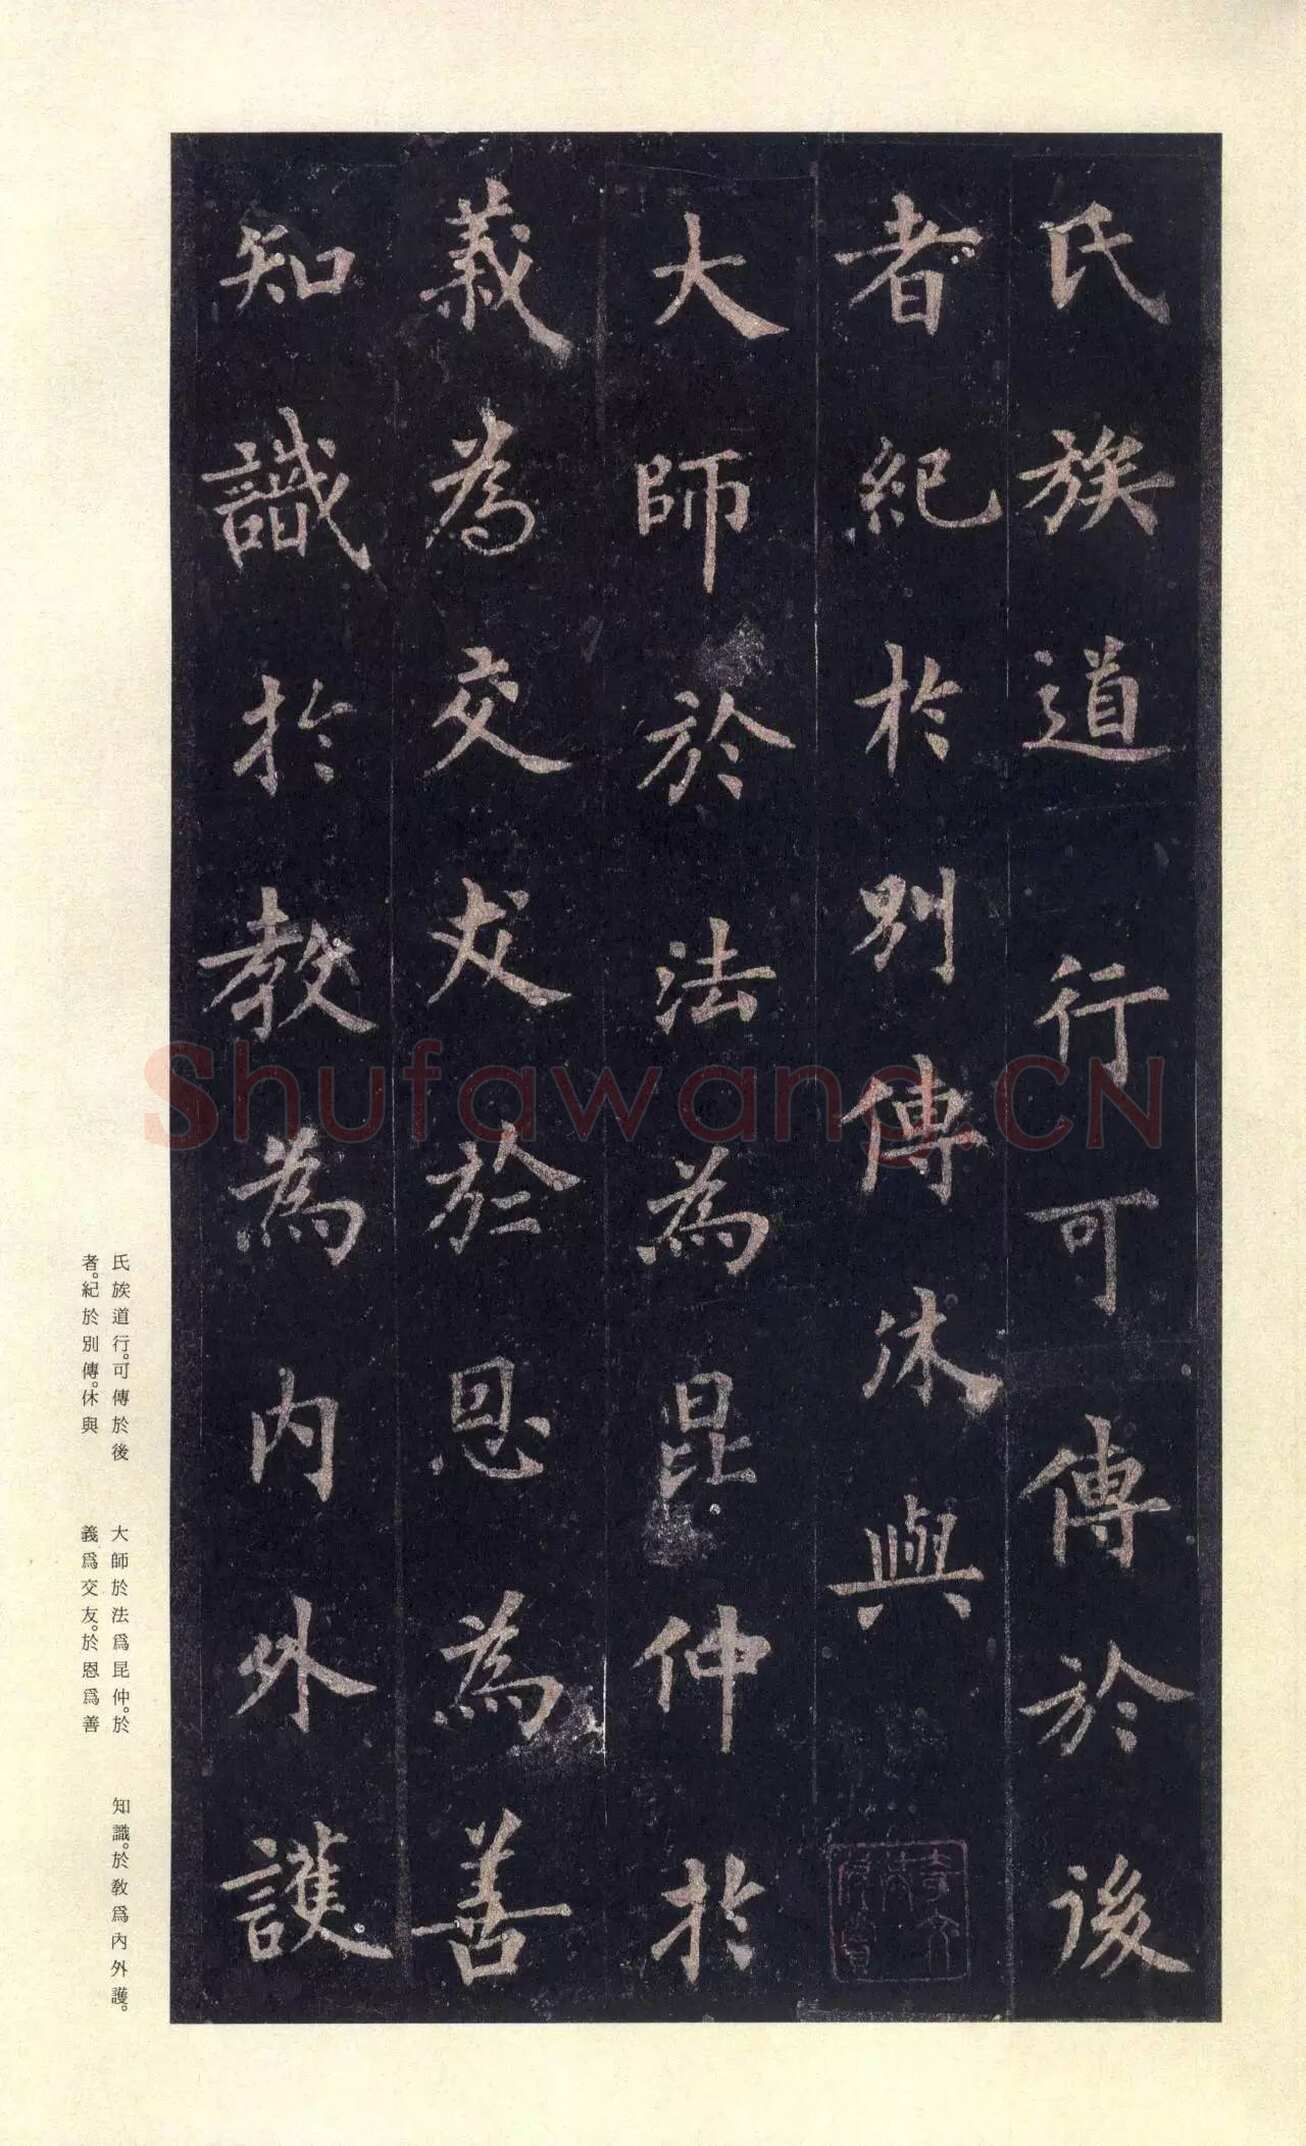 氏族道行可傳於後
者紀於別傳休與
大師於法為昆仲於
義為交友於恩為善
知識於教為內外護
氏族道行。可傳於後
者。紀於別傳。休與
大師於法爲昆仲。於
義爲交友。於恩爲善
知識。於教爲內外護。
Shufawang.CN